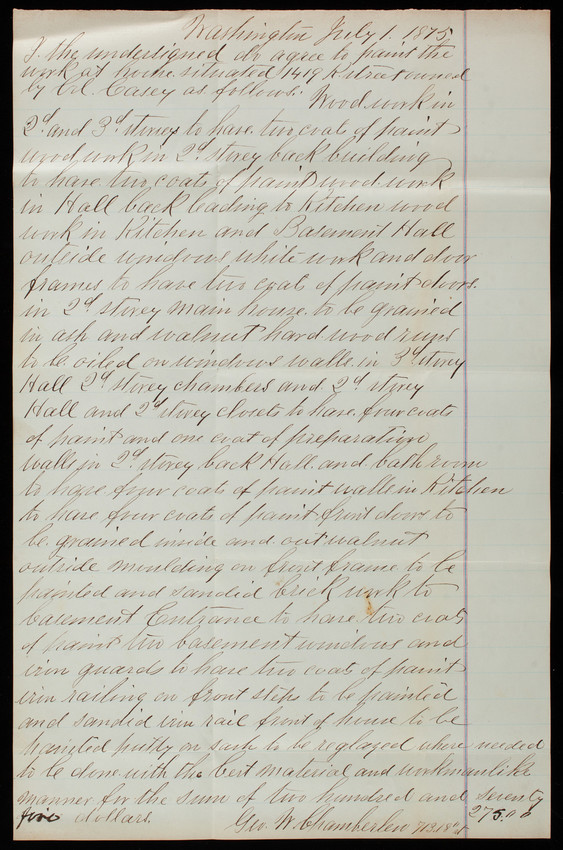 Washington July 1. 1875
I. the undersigned do agree to paint the
work at house situated 1419 K street owned
by Col. Casey as follows: Wood work in
2d and 3d storey to have two coats of paint
wood work in 2d storey back building
to have two coats of paint wood work
in Hall back leading to Kitchen wood
work in Kitchen and Basement Hall
outside windows white work and door
frames to have two coats of paint doors
in 2d storey main house to be grained
in ash and walnut hard wood runs
to be oiled on windows walls in 3d storey
Hall 2d storey chambers and 2d storey
Hall and 2d storey closets to have four coats
of paint and one coat of preparation
walls in 2d storey back Hall and bath room
to have four coats of paint walls in Kitchen
to have four coats of paint front doors to
be grained inside and out walnut
outside moulding on front frame to be
painted and sandid brick work to
basement Entrance to have two coats
of paint two basement windows and
iron guards to have two coats of paint
iron railing on front steps to be painted
and sandid iron rail front of house to be
painted putty on sash to be reglazed where needed
to be done with the best material and workmanlike
manner for the sum of two hundred and seventy
five dollars. 275.00
Geo. W. Chamberlew 713.18th St